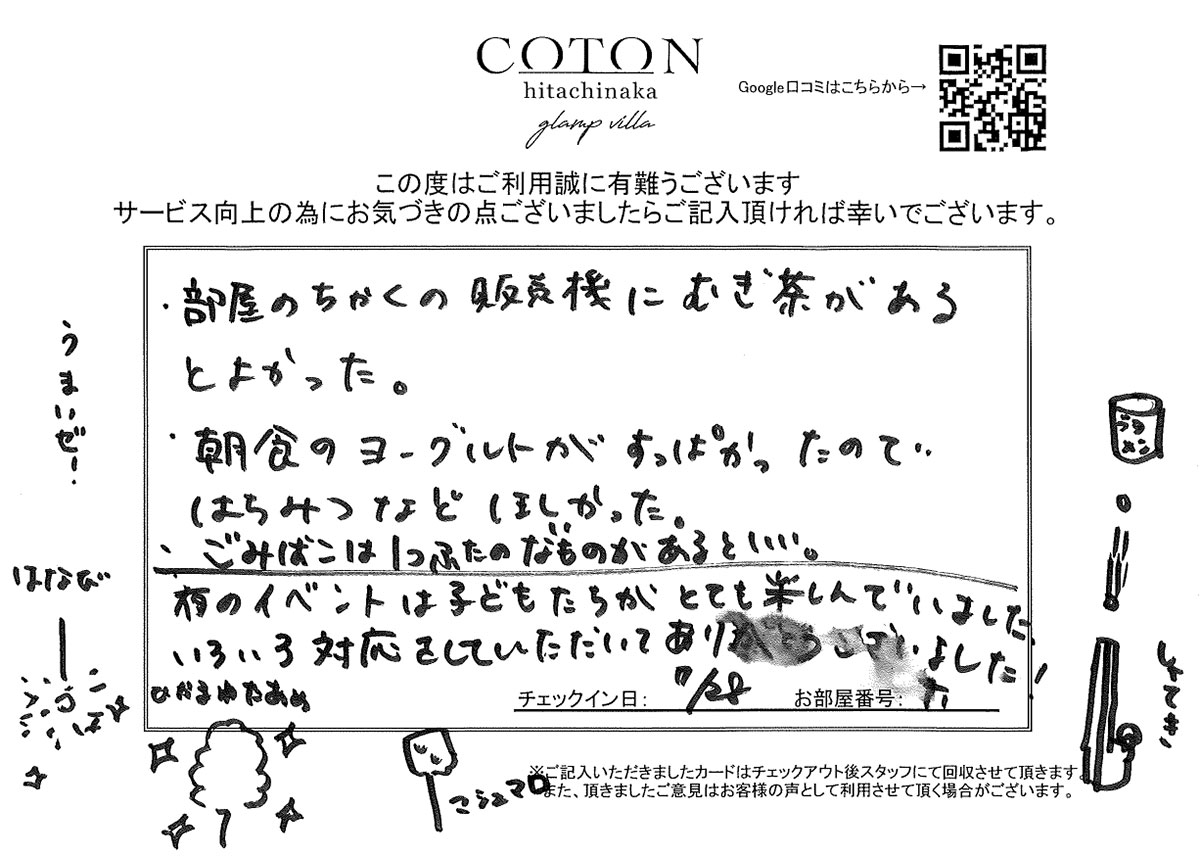 COTON
hitachinaka
glamp villa
Google口コミはこちらから→
この度はご利用誠に有難うございます
サービス向上の為にお気づきの点ございましたらご記入頂ければ幸いでございます。
・部屋のちかくの販売機にむぎ茶がある
とよかった。
・朝食のヨーグルトがすっぱかったので
はちみつなどほしかった。
・ごみばこは1つふたのなものがあるといい。
夜のイベントは子どもたちがとても楽しんでいました
いろいろ対応をしていただいてありがとうございました!
チェックイン日: 7/28 お部屋番号:
うまいぜー!
はなび
ひかるわたあめ
マシュマロ
しゃてき
※ご記入いただきましたカードはチェックアウト後スタッフにて回収させて頂きます。
また、頂きましたご意見はお客様の声として利用させて頂く場合がございます。